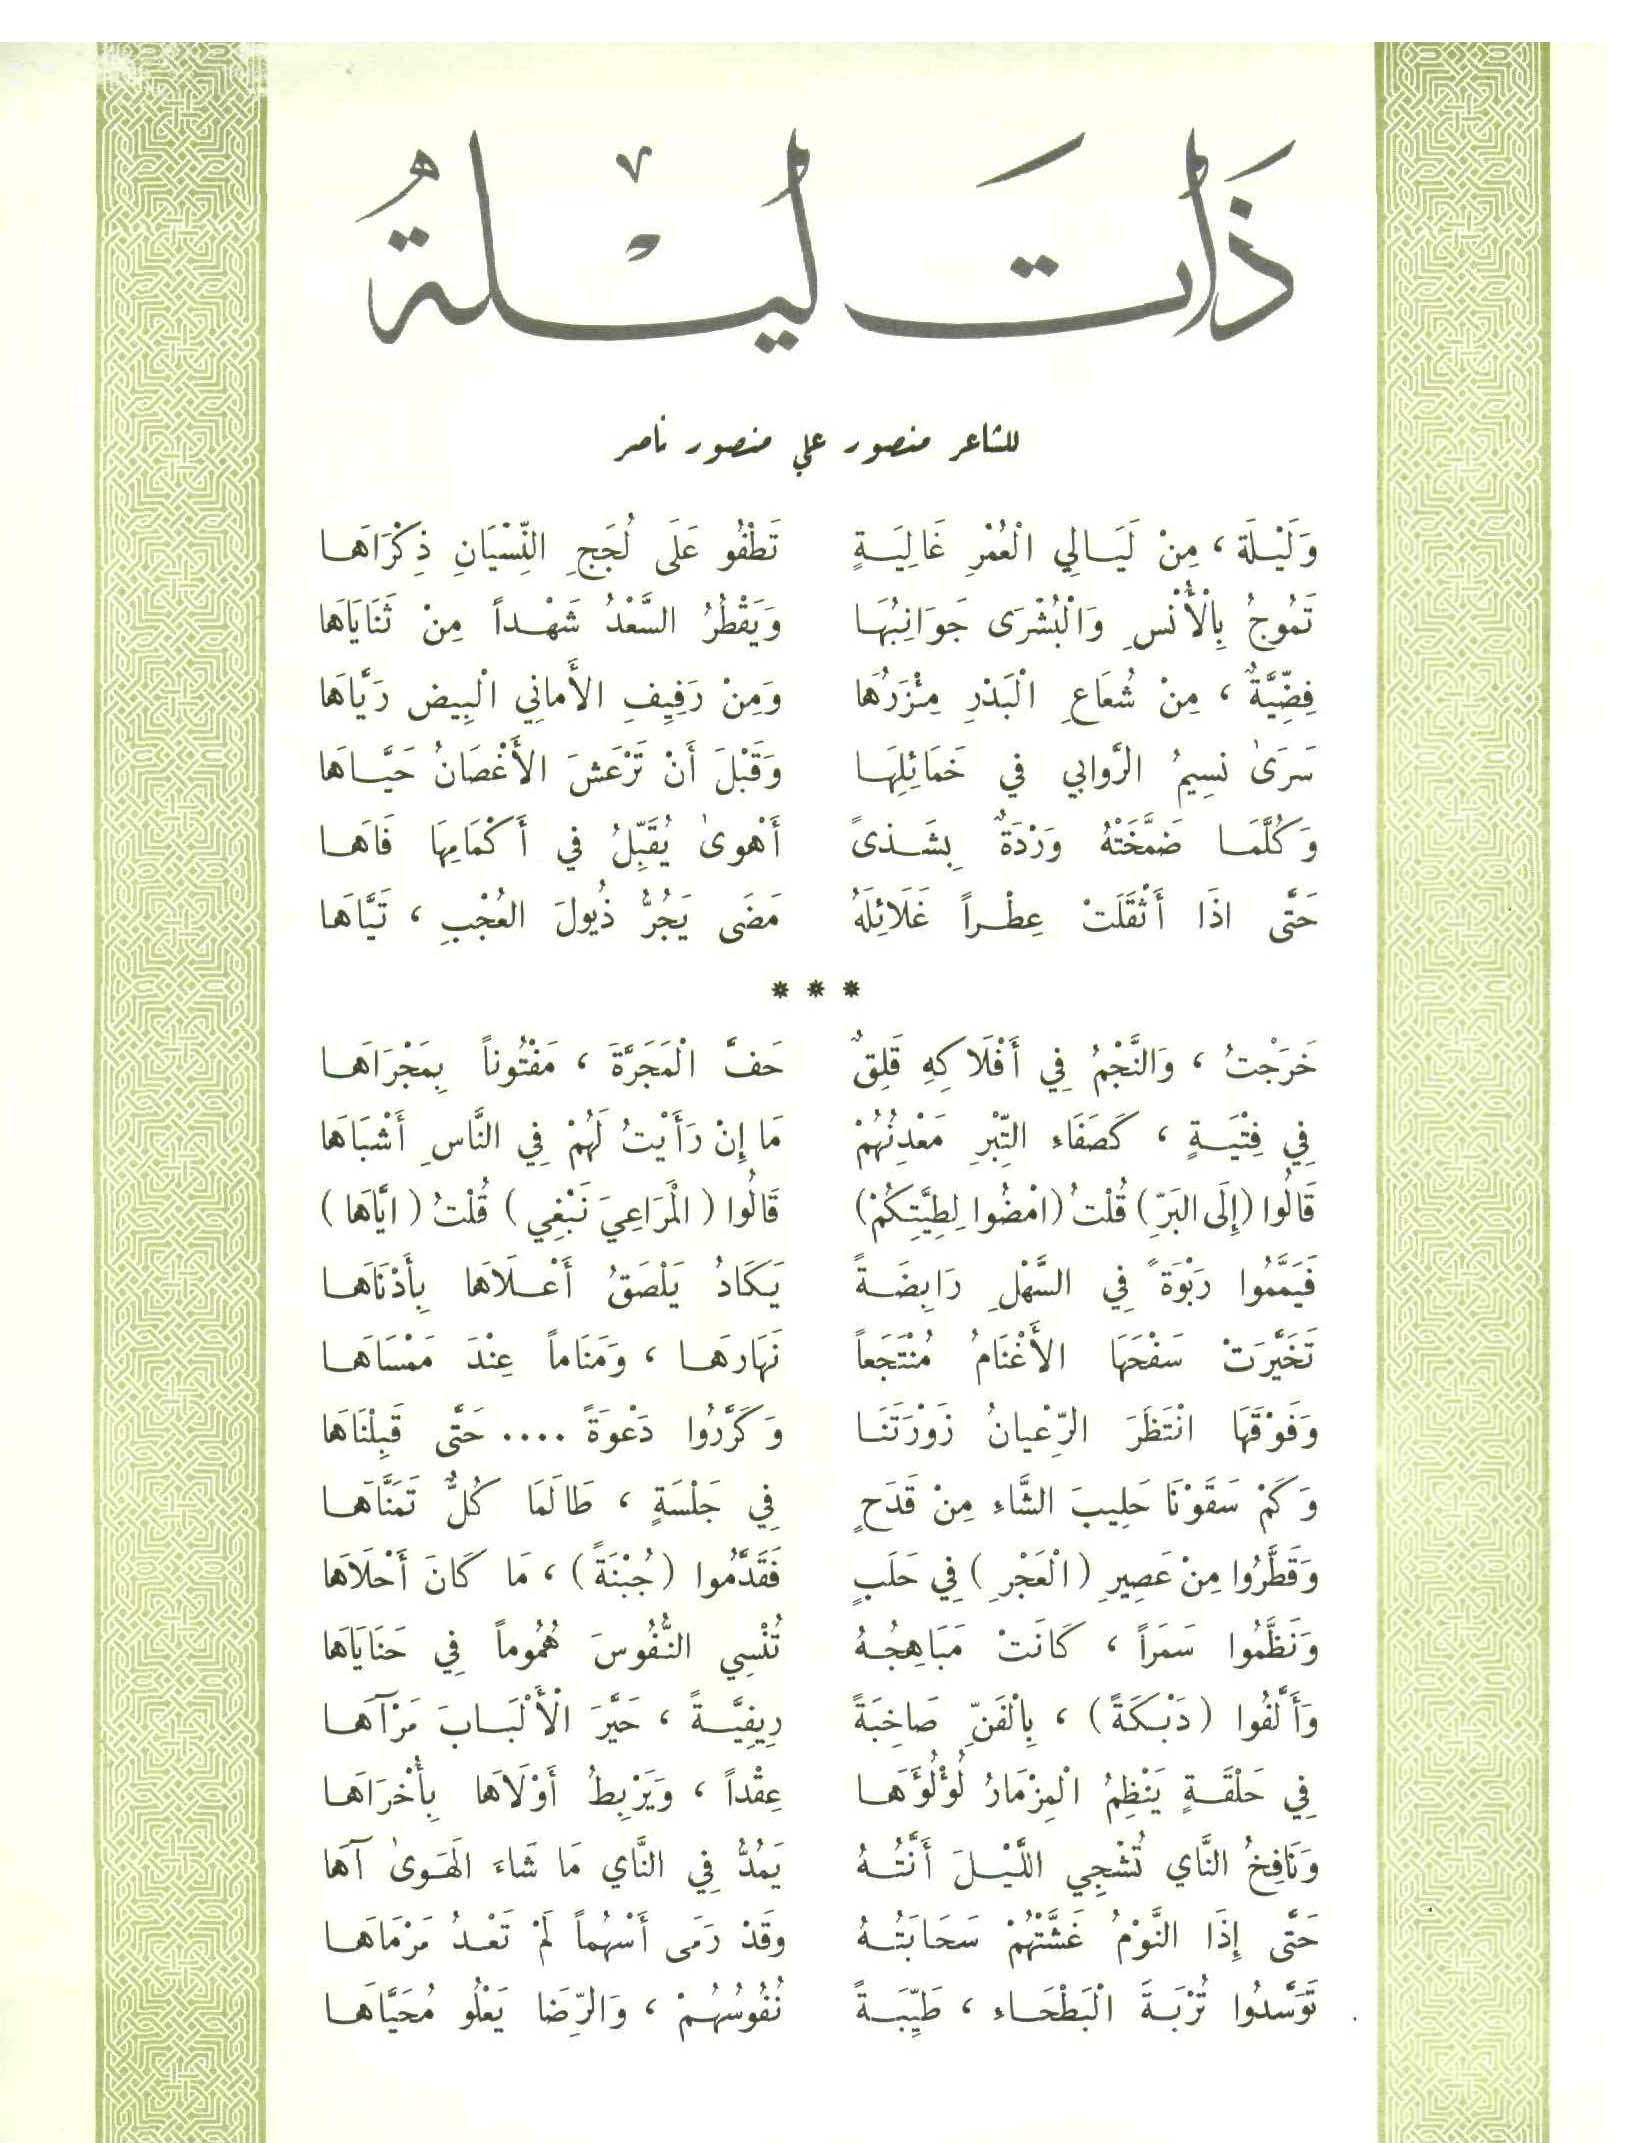 ذَاتَ لَيْلَةُ
للشاعر منصور علي منصور ناصر
وَلَيْـلَة ، مِنْ لَيَـالِي الْعُمْرِ غَالِيَـةٍ تَطْفُو عَلَى لُجَجِ النِّسْيَانِ ذِكْرَاهَـا
تَمُوجُ بِالْأُنْسِ وَالْبُشْرَى جَوَانِبُهَـا وَيَقْطُرُ السَّعْدُ شَهْـداً مِنْ ثَنَايَاهَا
فِضِّيَّةٌ ، مِنْ شُعَاعِ الْبَدْرِ مِئْزَرُهَا وَمِنْ رَفِيفِ الأَمانِي الْبِيض رَيَّاهَا
سَرَىٰ نسِيمُ الرَّوابي في خَمَائِلِهَـا وَقَبْلَ أَنْ تَرْعَشَ الأَغْصَانُ حَيَّـاهَا
وَكُلَّمَـا ضَمَّخَتْهُ وَرْدَةٌ بِشَـذىً أَهْوىٰ يُقَبِّلُ في أَكْمَامِهَا فَاهَـا
حَتَّى اذَا أَثْقَلَتْ عِطْـراً غَلَائِلَهُ مَضَى يَجُرُّ ذُيُولَ العُجْبِ ، تَيَّاهَا
* * *
خَرَجْتُ ، وَالنَّجْمُ فِي أَفْلَاكِهِ قَلِقٌ حَفَّ الْمَجَرَّةَ ، مَفْتُوناً بِمَجْرَاهَـا
فِي فِتْيَـةٍ ، كَصَفَاءِ التِّبْرِ مَعْدِنُهُمْ مَا إِنْ رَأَيْتُ لَهُمْ فِي النَّاسِ أَشْبَاهَا
قَالُوا (إِلَى البَرِّ) قُلْتُ (امْضُوا لِطِيَّتِكُمْ) قَالُوا (الْمَرَاعِيَ نَبْغِي) قُلْتُ (ايَّاهَا)
فَيَمَّمُوا رَبْوَةً فِي السَّهْلِ رَابِضَـةً يَـكَادُ يَلْصَقُ أَعْـلَاهَا بِأَدْنَاهَـا
تَخَيَّرَتْ سَفْحَهَا الأَغْنَامُ مُنْتَجَعاً نَهَارَهَـا ، وَمَنَاماً عِنْدَ مَمْسَاهَـا
وَفَوْقَهَا انْتَظَرَ الرِّعْيانُ زَوْرَتَنَـا وَكَرَّرُوا دَعْوَةً .... حَتَّى قَبِلْنَاهَا
وَكَمْ سَقَوْنَا حَلِيبَ الشَّاءِ مِنْ قَدَحٍ فِي جَلْسَةٍ ، طَالَمَا كُلٌّ تَمَنَّاهَـا
وَقَطَّرُوا مِنْ عَصِيرِ (الْعَجْرِ) فِي حَلَبٍ فَقَدَّمُوا (جُبْنَةً) ، مَا كَانَ أَحْلَاهَا
وَنَظَّمُوا سَمَراً ، كَانَتْ مَبَاهِجُـهُ تُنْسِي النُّفُوسَ هُمُوماً فِي حَنَايَاهَا
وَأَلَّفُوا (دَبْـكَةً) ، بِالْفَنِّ صَاخِبَةً رِيفِيَّـةً ، حَيَّرَ الْأَلْبَـابَ مَرْآهَـا
فِي حَلْقَـةٍ يَنْظِمُ الْمِزْمَارُ لُؤْلُؤَهَـا عِقْداً ، وَيَرْبِطُ أَوْلَاهَا بِأُخْرَاهَـا
وَنَافِخُ النَّايِ تُشْجِي اللَّيْـلَ أَنَّتُـهُ يَمُدُّ فِي النَّايِ مَا شَاءَ الهَـوىٰ آهَا
حَتَّى إِذَا النَّوْمُ غَشَّتْهُمْ سَحَابَتُـهُ وقَدْ رَمَى أَسْهُماً لَمْ تَعْـدُ مَرْمَاهَـا
تَوَسَّدُوا تُرْبَـةَ الْبَطْحَـاءِ ، طَيِّبَـةً نُفُوسُهُـمْ ، وَالرِّضَا يَعْلُو مُحَيَّاهَـا